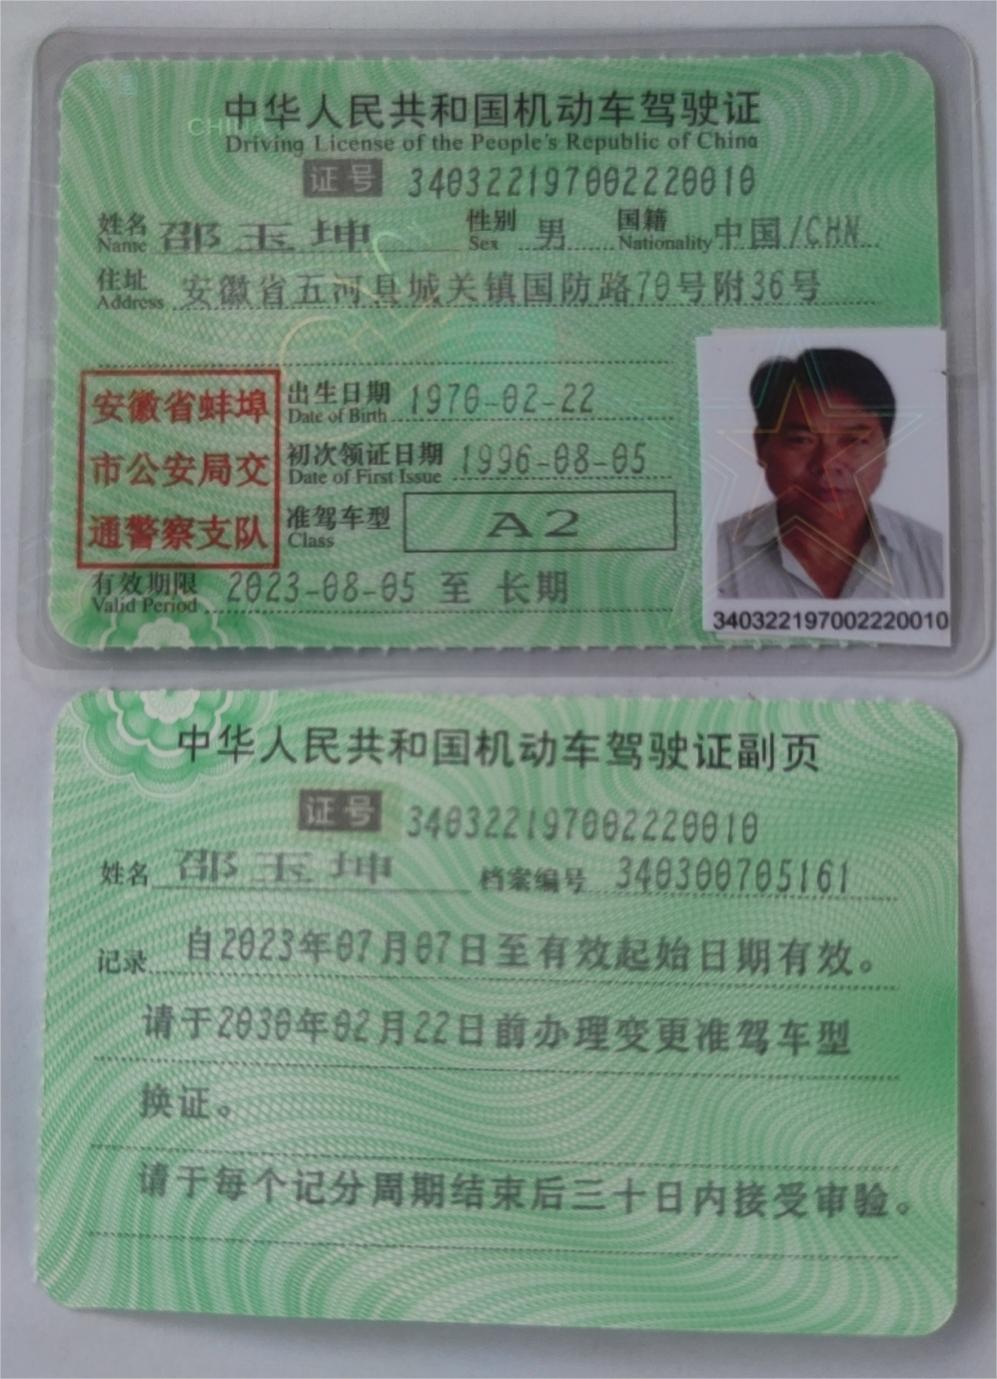 中国
CHINA
中华人民共和国机动车驾驶证
Driving License of the People's Republic of China
证号 340322197002220010
姓名 Name 邵玉坤 性别 Sex 男 国籍 Nationality 中国/CHN
住址 Address 安徽省五河县城关镇国防路70号附36号
安徽省蚌埠
市公安局交
通警察支队
出生日期 Date of Birth 1970-02-22
初次领证日期 Date of First Issue 1996-08-05
准驾车型 Class A2
有效期限 Valid Period 2023-08-05 至 长期
340322197002220010
中华人民共和国机动车驾驶证副页
证号 340322197002220010
姓名 邵玉坤 档案编号 340300705161
记录 自2023年07月07日至有效起始日期有效。
请于2030年02月22日前办理变更准驾车型
换证。
请于每个记分周期结束后三十日内接受审验。